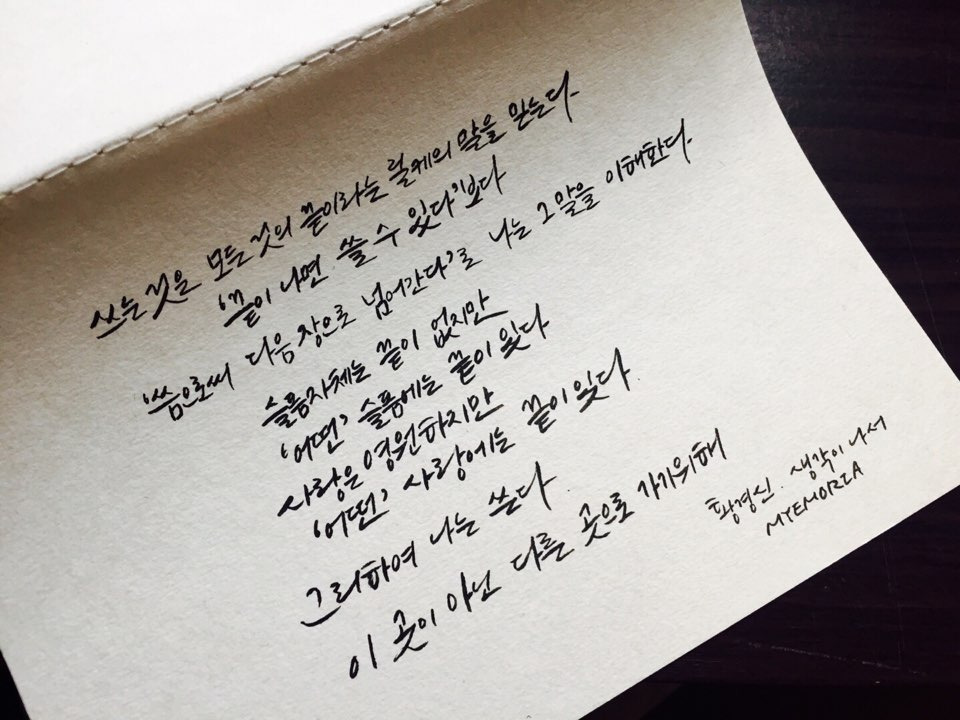 쓰는 것은 모든 것의 끝이라는 릴케의 말을 믿는다.
'끝이 나면 쓸 수 있다'보다
'씀으로써 다음 장으로 넘어간다'로 나는 그 말을 이해한다.
슬픔자체는 끝이 없지만
'어떤' 슬픔에는 끝이 있다
사랑은 영원하지만
'어떤' 사랑에는 끝이 있다.
그리하여 나는 쓴다
이 곳이 아닌 다른 곳으로 가기위해
황경신. 생각이 나서
MYEMORIA